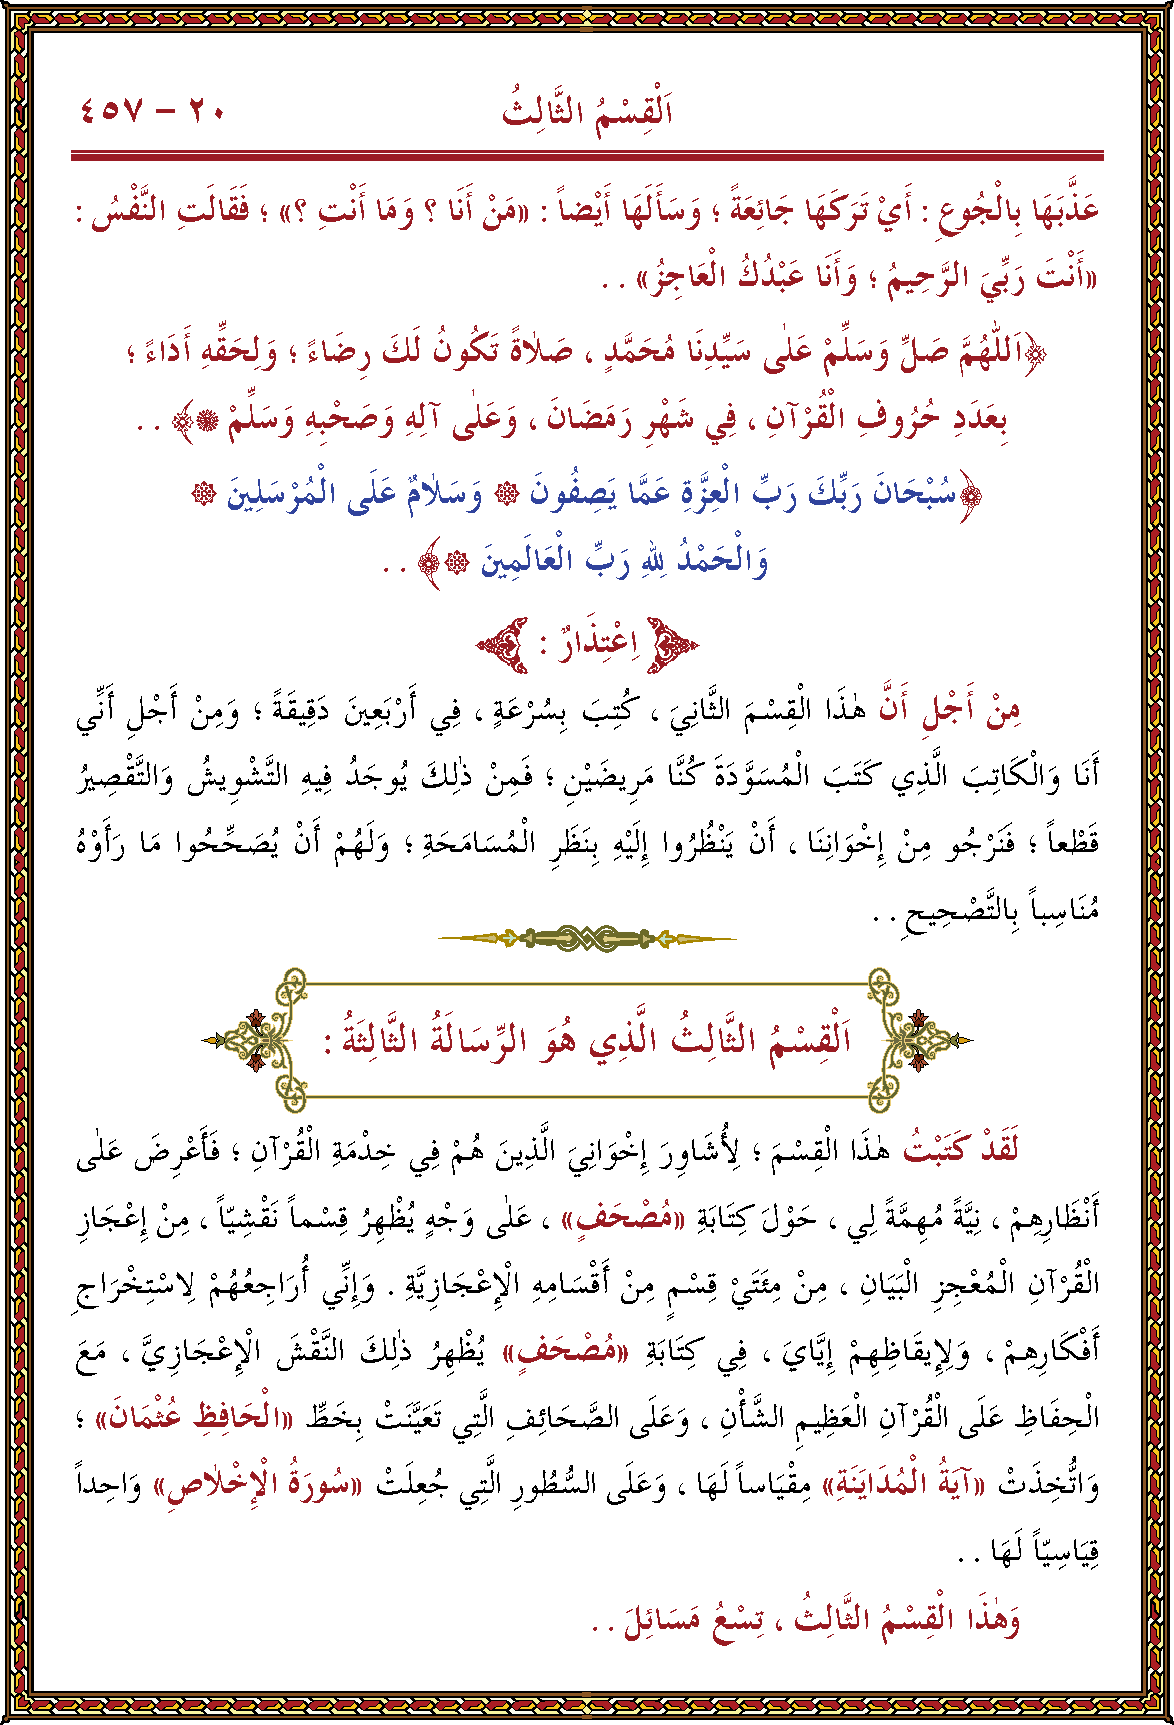 اَلْقِسْمُ الثَّالِثُ
٢٠ - ٤٥٧
عَذَّبَهَا بِالْجُوعِ : أَيْ تَرَكَهَا جَائِعَةً ؛ وَسَأَلَهَا أَيْضاً : «مَنْ أَنَا ؟ وَمَا أَنْتِ ؟» ؛ فَقَالَتِ النَّفْسُ :
«أَنْتَ رَبِّيَ الرَّحِيمُ ؛ وَأَنَا عَبْدُكُ الْعَاجِزُ» . .
﴿اَللّٰهُمَّ صَلِّ وَسَلِّمْ عَلٰى سَيِّدِنَا مُحَمَّدٍ ، صَلَاةً تَكُونُ لَكَ رِضَاءً ؛ وَلِحَقِّهِ أَدَاءً ؛
بِعَدَدِ حُرُوفِ الْقُرْآنِ ، فِي شَهْرِ رَمَضَانَ ، وَعَلٰى آلِهِ وَصَحْبِهِ وَسَلِّمْ ۞﴾ . .
﴿سُبْحَانَ رَبِّكَ رَبِّ الْعِزَّةِ عَمَّا يَصِفُونَ ۞ وَسَلَامٌ عَلَى الْمُرْسَلِينَ ۞
وَالْحَمْدُ لِلهِ رَبِّ الْعَالَمِينَ ۞﴾ . .
اِعْتِذَارٌ :
مِنْ أَجْلِ أَنَّ هٰذَا الْقِسْمَ الثَّانِيَ ، كُتِبَ بِسُرْعَةٍ ، فِي أَرْبَعِينَ دَقِيقَةً ؛ وَمِنْ أَجْلِ أَنِّي
أَنَا وَالْكَاتِبَ الَّذِي كَتَبَ الْمُسَوَّدَةَ كُنَّا مَرِيضَيْنِ ؛ فَمِنْ ذٰلِكَ يُوجَدُ فِيهِ التَّشْوِيشُ وَالتَّقْصِيرُ
قَطْعاً ؛ فَنَرْجُو مِنْ إِخْوَانِنَا ، أَنْ يَنْظُرُوا إِلَيْهِ بِنَظَرِ الْمُسَامَحَةِ ؛ وَلَهُمْ أَنْ يُصَحِّحُوا مَا رَأَوْهُ
مُنَاسِباً بِالتَّصْحِيحِ . .
اَلْقِسْمُ الثَّالِثُ الَّذِي هُوَ الرِّسَالَةُ الثَّالِثَةُ :
لَقَدْ كَتَبْتُ هٰذَا الْقِسْمَ ؛ لِأُشَاوِرَ إِخْوَانِيَ الَّذِينَ هُمْ فِي خِدْمَةِ الْقُرْآنِ ؛ فَأَعْرِضَ عَلٰى
أَنْظَارِهِمْ ، نِيَّةً مُهِمَّةً لِي ، حَوْلَ كِتَابَةِ «مُصْحَفٍ» ، عَلٰى وَجْهٍ يُظْهِرُ قِسْماً نَقْشِيّاً ، مِنْ إِعْجَازِ
الْقُرْآنِ الْمُعْجِزِ الْبَيَانِ ، مِنْ مِئَتَيْ قِسْمٍ مِنْ أَقْسَامِهِ الْإِعْجَازِيَّةِ . وَإِنِّي أُرَاجِعُهُمْ لِاسْتِخْرَاجِ
أَفْكَارِهِمْ ، وَلِإِيقَاظِهِمْ إِيَّايَ ، فِي كِتَابَةِ «مُصْحَفٍ» يُظْهِرُ ذٰلِكَ النَّقْشَ الْإِعْجَازِيَّ ، مَعَ
الْحِفَاظِ عَلَى الْقُرْآنِ الْعَظِيمِ الشَّأْنِ ، وَعَلَى الصَّحَائِفِ الَّتِي تَعَيَّنَتْ بِخَطِّ «الْحَافِظِ عُثْمَانَ» ؛
وَاتُّخِذَتْ «آيَةُ الْمُدَايَنَةِ» مِقْيَاساً لَهَا ، وَعَلَى السُّطُورِ الَّتِي جُعِلَتْ «سُورَةُ الْإِخْلَاصِ» وَاحِداً
قِيَاسِيّاً لَهَا . .
وَهٰذَا الْقِسْمُ الثَّالِثُ ، تِسْعُ مَسَائِلَ . .